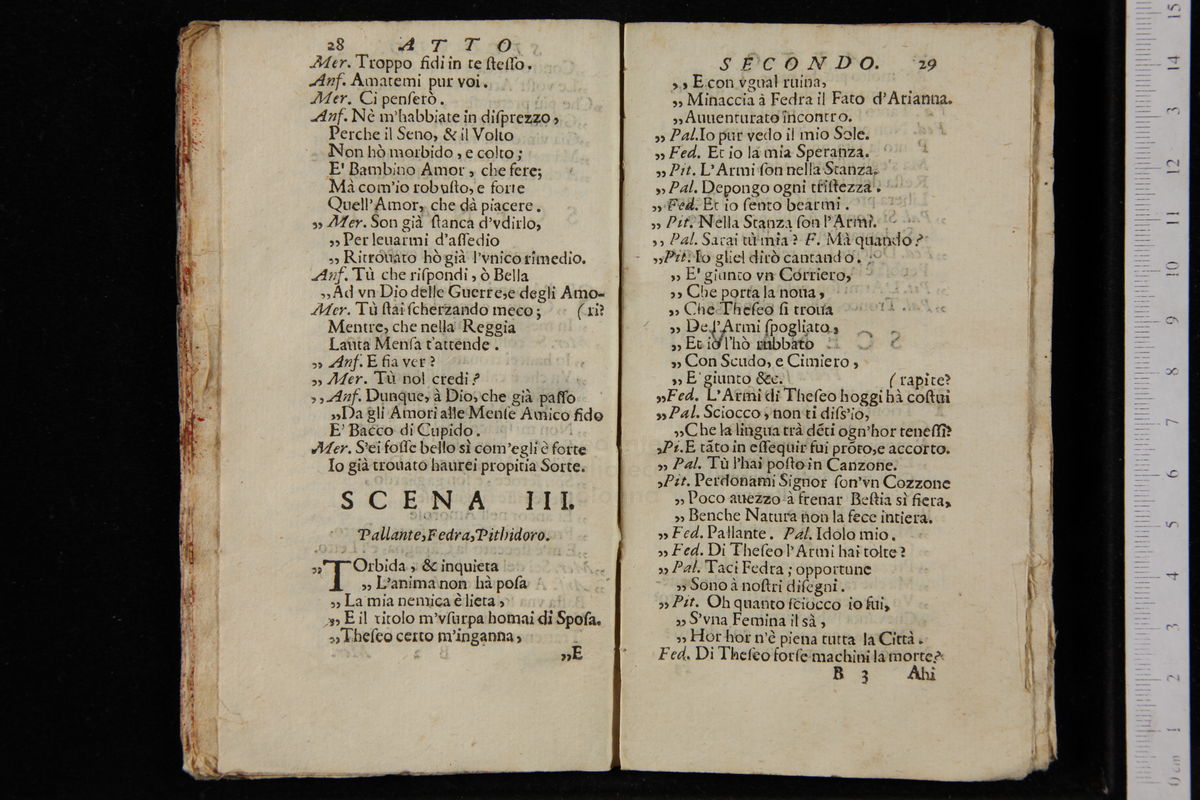 28 ATTO
Mer. Troppo fidi in te ſteſſo.
Anf. Amatemi pur voi.
Mer. Ci penſerò.
Anf. Nè m'habbiate in diſprezzo,
Perche il Seno, & il Volto
Non hò morbido, e colto;
E' Bambino Amor, che fere;
Mà com'io robuſto, e forte
Quell'Amor, che dà piacere.
„ Mer. Son già ſtanca d'vdirlo,
„ Per leuarmi d'aſſedio
„ Ritrouato hò già l'vnico rimedio.
Anf. Tù che riſpondi, ò Bella
„Ad vn Dio delle Guerre,e degli Amo-
Mer. Tù ſtai ſcherzando meco; (ri?
Mentre, che nella Reggia
Lauta Menſa t'attende.
„ Anf. E fia ver?
„ Mer. Tù nol credi?
„ Anf. Dunque, à Dio, che già paſſo
„Da gli Amori alle Menſe Amico fido
E' Bacco di Cupido.
Mer. S'ei foſſe bello sì com'egli è forte
Io già trouato haurei propitia Sorte.
SCENA III.
Pallante,Fedra,Pithidoro.
„TOrbida, & inquieta
„ L'anima non hà poſa
„ La mia nemica è lieta,
„ E il titolo m'vſurpa homai di Spoſa.
„Theſeo certo m'inganna,
„E
SECONDO. 29
„ E con vgual ruina,
„ Minaccia à Fedra il Fato d'Arianna.
„ Auuenturato incontro.
„ Pal.Io pur vedo il mio Sole.
„ Fed. Et io la mia Speranza.
„ Pit. L'Armi ſon nella Stanza.
„ Pal. Depongo ogni triſtezza.
„ Fed. Et io ſento bearmi.
„ Pit. Nella Stanza ſon l'Armi.
„ Pal. Sarai tù mia? F. Mà quando?
„Pit. Io gliel dirò cantando.
„ E' giunto vn Corriero,
„ Che porta la noua,
„ Che Theſeo ſi troua
„ De l'Armi ſpogliato,
„ Et io l'hò rubbato
„ Con Scudo, e Cimiero,
„ E' giunto &c. (rapite?
„Fed. L'Armi di Theſeo hoggi hà coſtui
„Pal. Sciocco, non ti diſs'io,
„Che la lingua trà dẽti ogn'hor teneſſi?
„Pi.E tãto in eſſequir fui prõto,e accorto.
„ Pal. Tù l'hai poſto in Canzone.
„Pit. Perdonami Signor ſon'vn Cozzone
„ Poco auezzo à frenar Beſtia sì fiera,
„ Benche Natura non la fece intiera.
„ Fed. Pallante. Pal. Idolo mio.
„ Fed. Di Theſeo l'Armi hai tolte?
„ Pal. Taci Fedra; opportune
„ Sono à noſtri diſegni.
„ Pit. Oh quanto ſciocco io fui,
„ S'vna Femina il sà,
„ Hor hor n'è piena tutta la Città.
Fed. Di Theſeo forſe machini la morte?
B 3 Ahi
0 cm 1 2 3 4 5 6 7 8 9 10 11 12 13 14 15